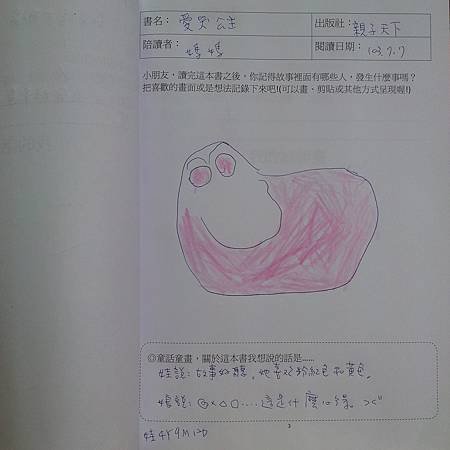 書名： 愛哭公主
出版社：親子天下
陪讀者： 媽媽
閱讀日期：103.7.7
小朋友，讀完這本書之後，你記得故事裡面有哪些人，發生什麼事嗎？
把喜歡的畫面或是想法記錄下來吧!(可以畫、剪貼或其他方式呈現喔!)
◎童話童畫，關於這本書我想說的話是......
娃說：故事好聽，她喜歡粉紅色和黃色。
媽說：◎×△□....這是什麼心得。><"
3
娃4Y9M12D